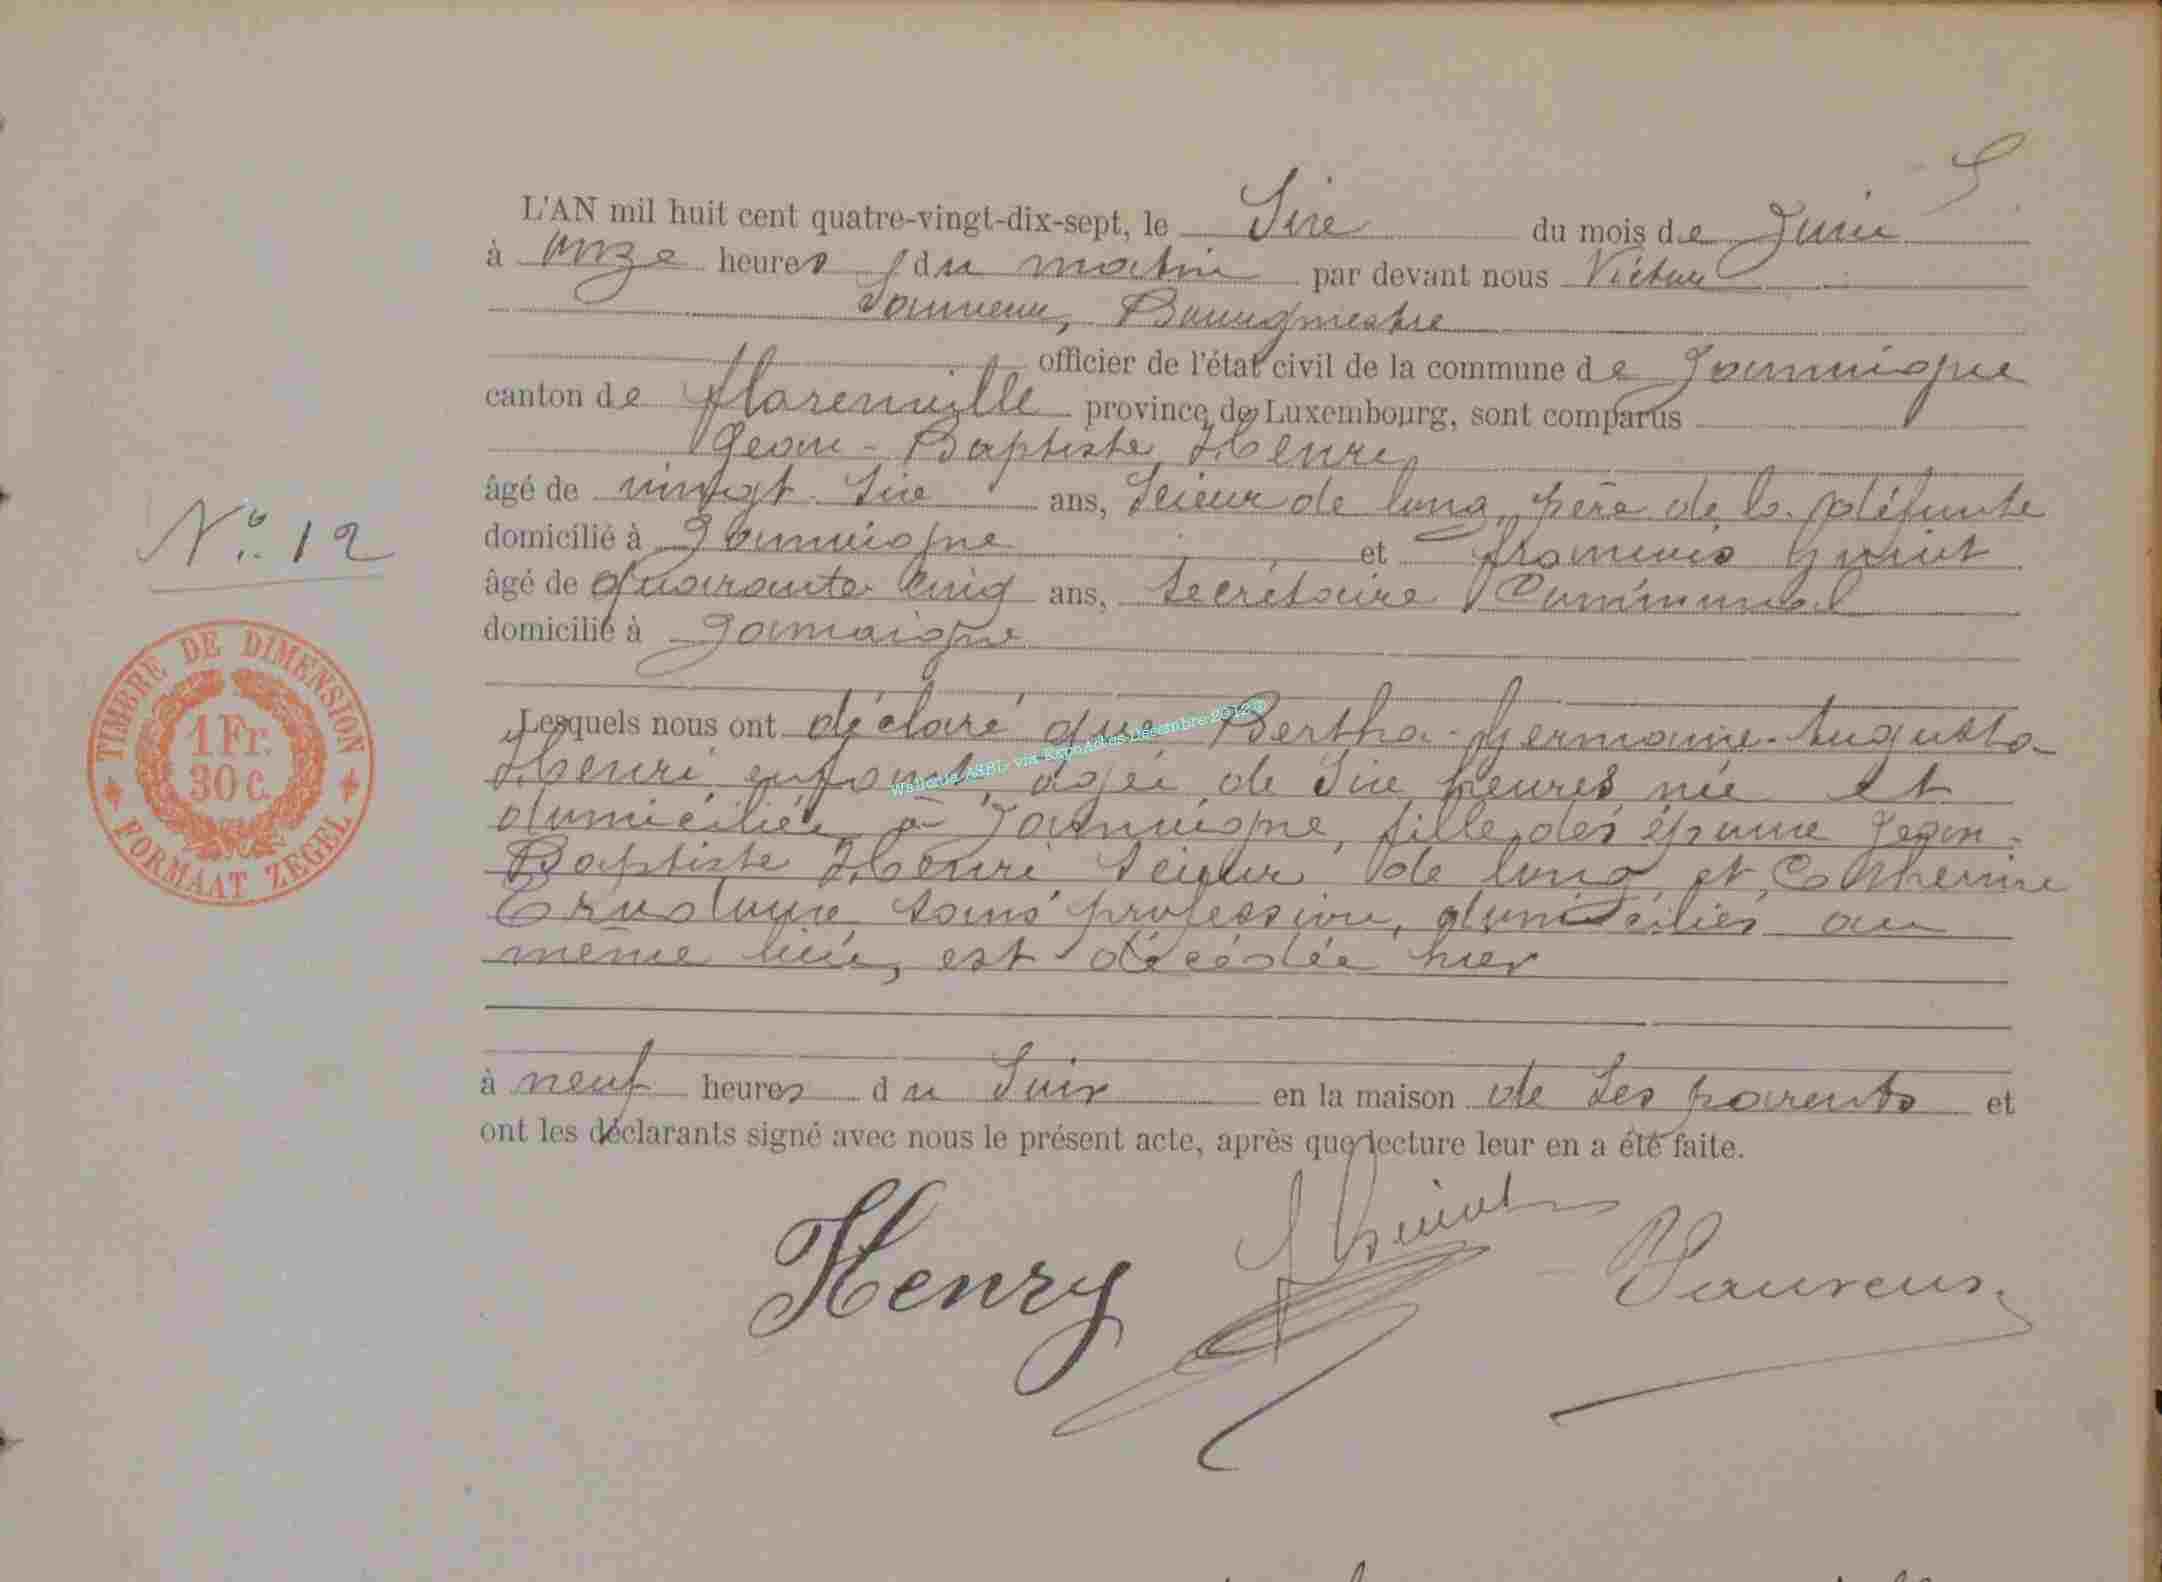 5
L'AN mil huit cent quatre-vingt-dix-sept, le Six du mois de Juin
à onze heures du matin par devant nous Victor
Sauveur, Bourgmestre
officier de l'état civil de la commune de Jamoigne
canton de florenville province de Luxembourg, sont comparus
Jean-Baptiste Henri
âgé de vingt six ans, Scieur de long, père de la défunte
domicilié à Jamoigne et françois
N° 12
âgé de quarante cinq ans, Secrétaire Communal
domicilié à Jamoigne
Lesquels nous ont déclaré que Bertha-Germaine-Augusta
Henri enfant, agée de six heures née et
domiciliée à Jamoigne, fille des époux Jean-
Baptiste Henri Scieur de long et Catherine
sans profession, domiciliés au
même lieu, est décédée hier
à neuf heures du Soir en la maison de ses parents et
ont les déclarants signé avec nous le présent acte, après que lecture leur en a été faite.
Henry Sauveur
TIMBRE DE DIMENSION
1 Fr.
30 c.
FORMAAT ZEGEL
Wallonia ASBL via ExpoActes Décembre 2012 ©